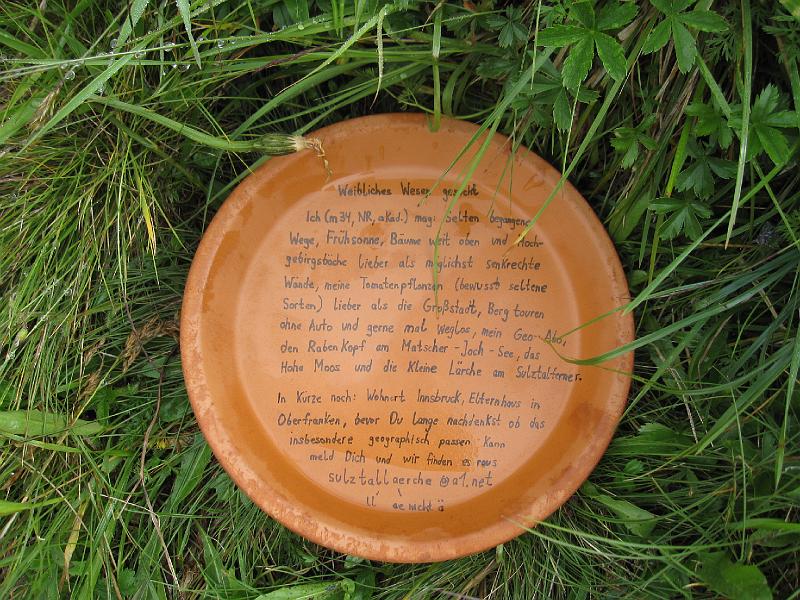 Weibliches Wesen gesucht
Ich (m34, NR, akad.) mag: Selten begangene
Wege, Frühsonne, Bäume weit oben und Hoch-
gebirgsbäche lieber als möglichst senkrechte
Wände, meine Tomatenpflanzen (bewusst seltene
Sorten) lieber als die Großstadt, Bergtouren
ohne Auto und gerne mal Weglos, mein Geo-Abo,
den Rabenkopf am Matscher-Joch-See, das
Hohe Moos und die Kleine Lärche am Sulztalferner.
In Kürze noch: Wohnort Innsbruck, Elternhaus in
Oberfranken, bevor Du lange nachdenkst ob das
insbesondere geographisch passen kann
meld Dich und wir finden es raus
sulztallaerche@a1.net
ll ae nicht ä